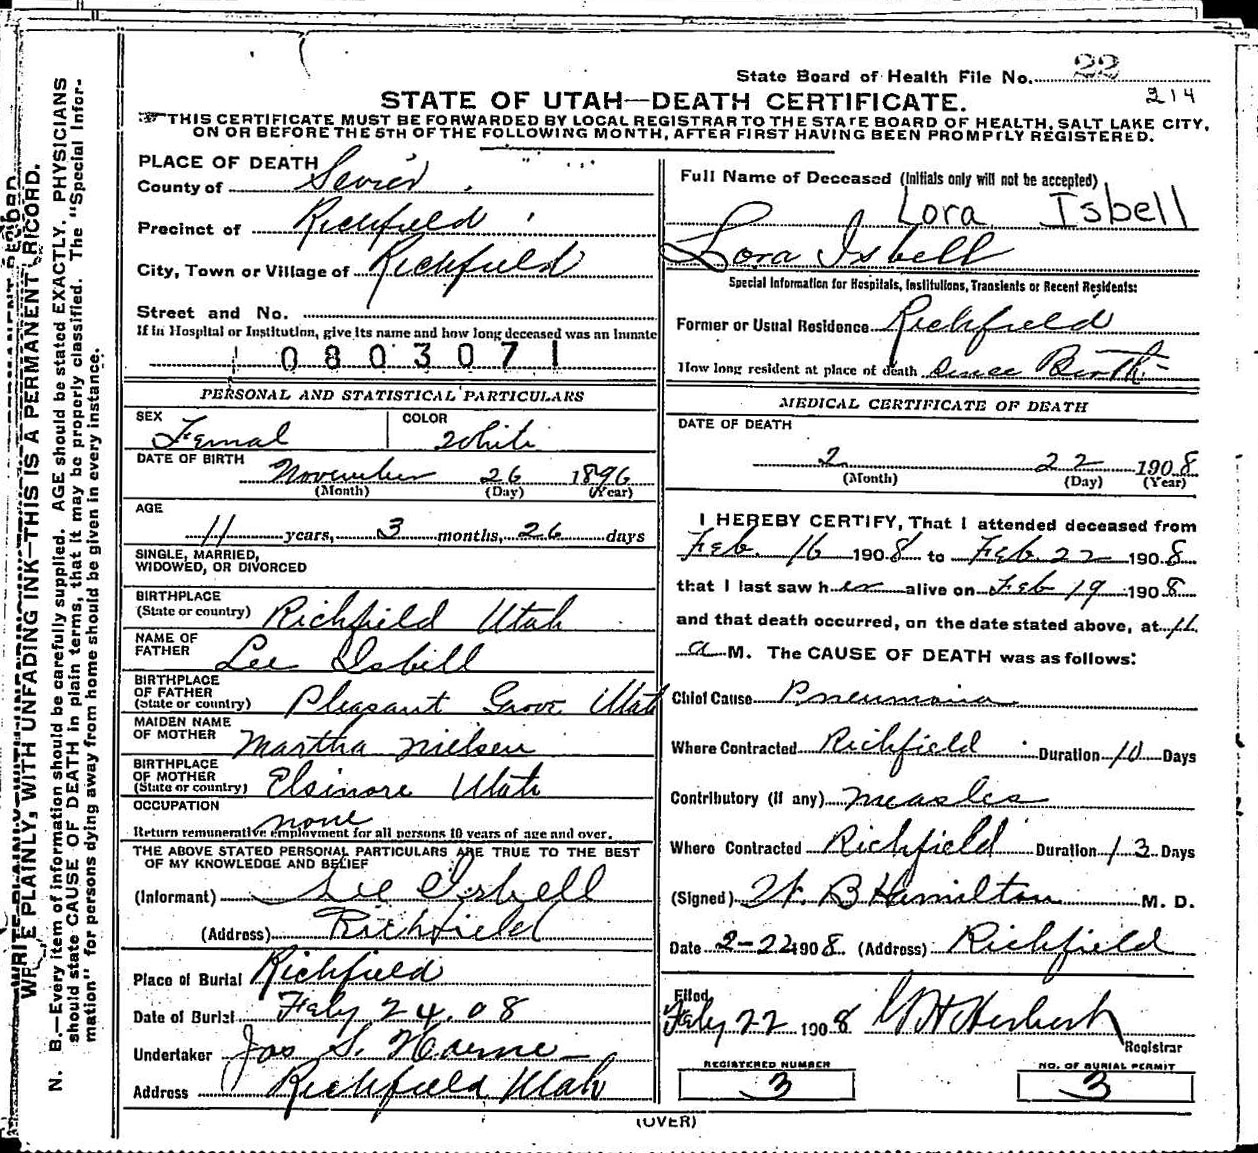 State Board of Health File No. 22
214
STATE OF UTAH—DEATH CERTIFICATE.
THIS CERTIFICATE MUST BE FORWARDED BY LOCAL REGISTRAR TO THE STATE BOARD OF HEALTH, SALT LAKE CITY,
ON OR BEFORE THE 5TH OF THE FOLLOWING MONTH, AFTER FIRST HAVING BEEN PROMPTLY REGISTERED.
WRITE PLAINLY, WITH UNFADING INK—THIS IS A PERMANENT RECORD.
N. B.—Every item of information should be carefully supplied. AGE should be stated EXACTLY. PHYSICIANS
should state CAUSE OF DEATH in plain terms, that it may be properly classified. The "Special Infor-
mation" for persons dying away from home should be given in every instance.
PLACE OF DEATH
County of Sevier
Precinct of Richfield
City, Town or Village of Richfield
Street and No.
If in Hospital or Institution, give its name and how long deceased was an inmate
0803071
PERSONAL AND STATISTICAL PARTICULARS
SEX Femal COLOR White
DATE OF BIRTH November 26 1896
(Month) (Day) (Year)
AGE
11 years, 3 months, 26 days
SINGLE, MARRIED,
WIDOWED, OR DIVORCED
BIRTHPLACE
(State or country) Richfield Utah
NAME OF
FATHER Lee Isbell
BIRTHPLACE
OF FATHER
(State or country) Pleasant Grove Utah
MAIDEN NAME
OF MOTHER Martha Nielsen
BIRTHPLACE
OF MOTHER
(State or country) Elsinore Utah
OCCUPATION
none
Return remunerative employment for all persons 10 years of age and over.
THE ABOVE STATED PERSONAL PARTICULARS ARE TRUE TO THE BEST
OF MY KNOWLEDGE AND BELIEF
(Informant) Lee Isbell
(Address) Richfield
Place of Burial Richfield
Date of Burial Feby 24.08
Undertaker Jas S. Horne
Address Richfield Utah
Full Name of Deceased (Initials only will not be accepted)
Lora Isbell
Lora Isbell
Special Information for Hospitals, Institutions, Transients or Recent Residents:
Former or Usual Residence Richfield
How long resident at place of death since Birth
MEDICAL CERTIFICATE OF DEATH
DATE OF DEATH
2 22 1908
(Month) (Day) (Year)
I HEREBY CERTIFY, That I attended deceased from
Feb. 16 1908 to Feb. 22 1908
that I last saw her alive on Feb 19 1908
and that death occurred, on the date stated above, at 11
a M. The CAUSE OF DEATH was as follows:
Chief Cause Pneumonia
Where Contracted Richfield Duration 10 Days
Contributory (if any) measles
Where Contracted Richfield Duration 13 Days
(Signed) W. B Hamilton M. D.
Date 2-22 1908 (Address) Richfield
Filed
Feby 22 1908 W H Herbert
Registrar
REGISTERED NUMBER
3
NO. OF BURIAL PERMIT
3
(OVER)